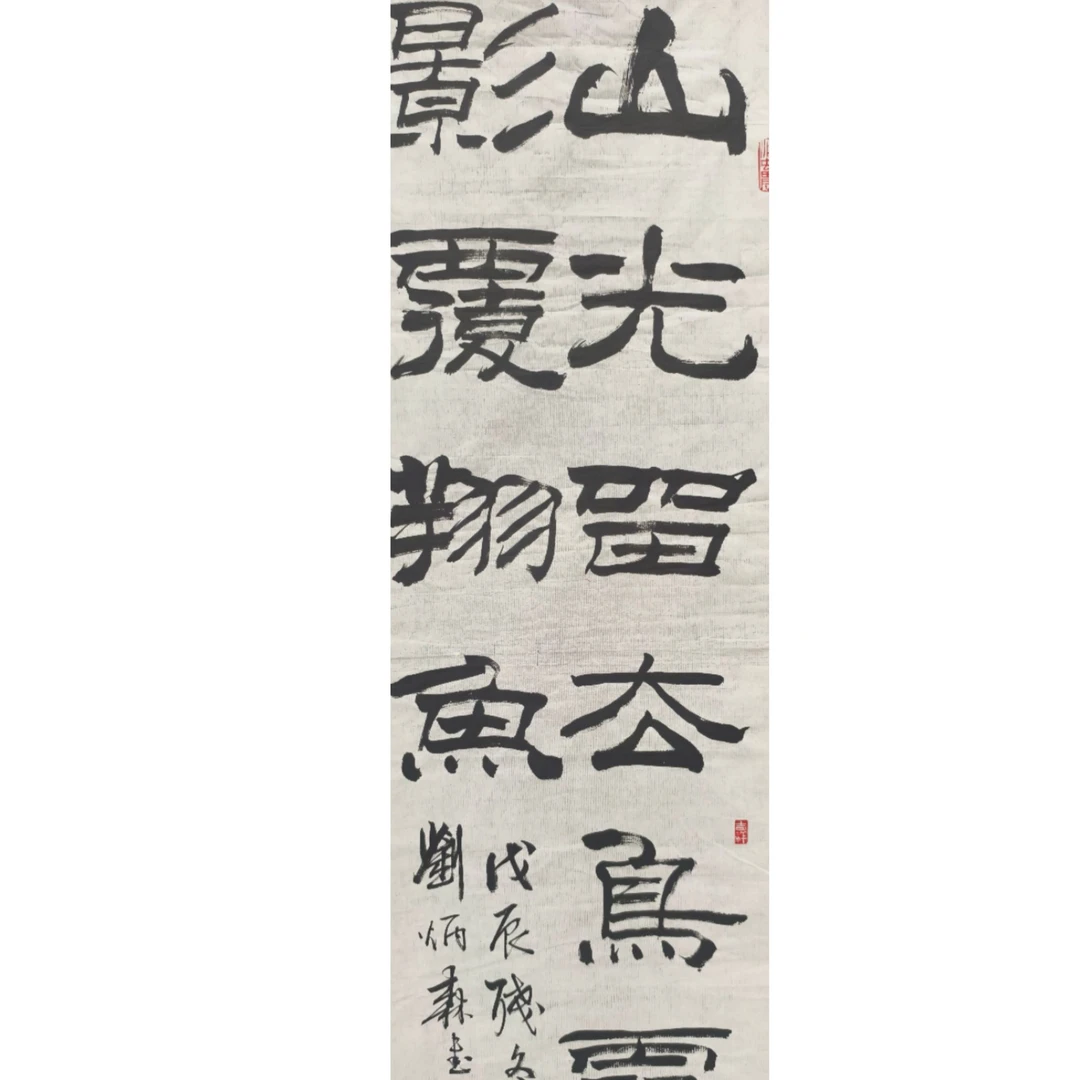 山光留去鳥
影覆翔魚
戊辰殘冬
劉炳森書